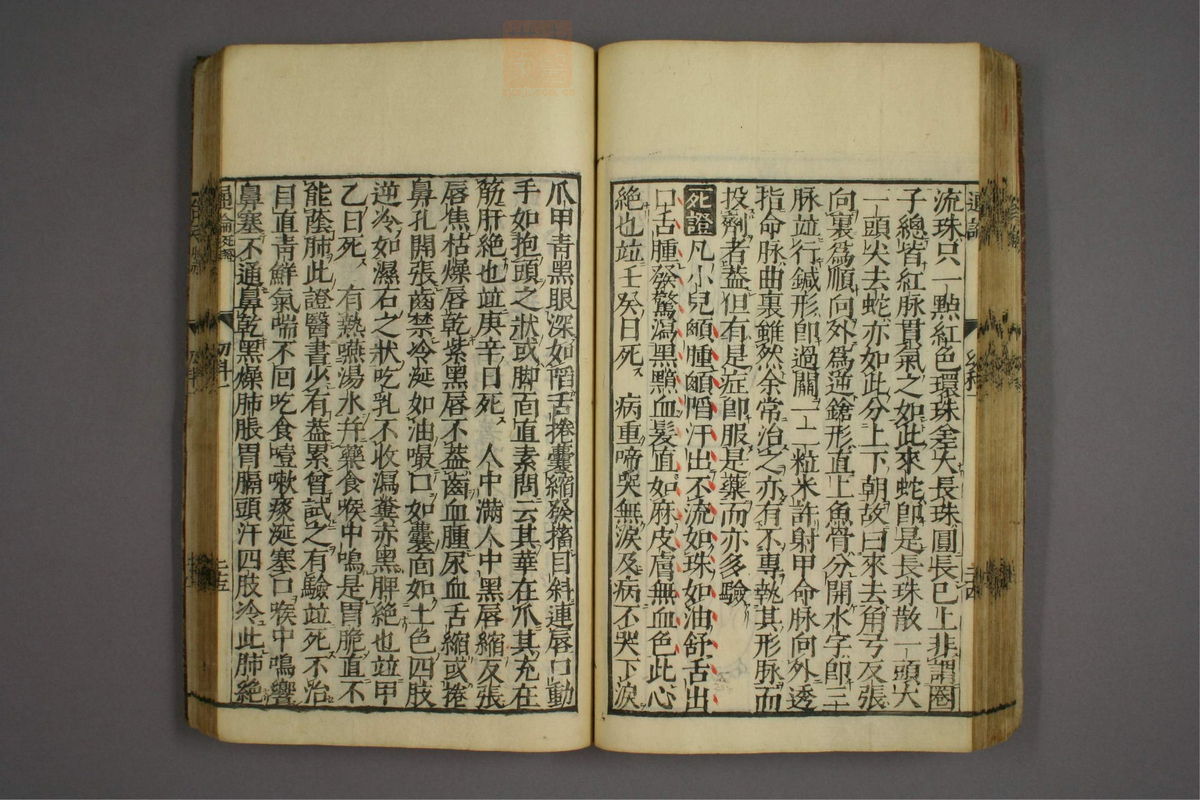 流珠只一㸃紅色環珠差大長珠圓長已上非謂圈
子總皆紅脉貫氣之如此來蛇卽是長珠散一頭大
一頭尖去蛇亦如此分上下朝故曰來去角弓反張
向裏爲順向外爲逆鎗形直上魚骨分開水字卽三
脉並行鍼形卽過關一二粒米許射甲命脉向外透
指命脉曲裏雖然余常治之亦有不專執其形脉而
投劑者蓋但有是症卽服是藥而亦多驗
死證 凡小兒顖腫顖陷汗出不流如珠如油舒舌出
口舌腫發驚瀉黑黯血髮直如麻皮膚無血色此心
絶也並壬癸日死 病重啼哭無淚及病不哭下淚
爪甲靑黑眼深如陷舌捲囊縮發搐目斜連唇口動
手如抱頭之狀或脚面直素問云其華在爪其充在
筋肝絶也並庚辛日死 人中滿人中黑唇縮反張
唇焦枯燥唇乾紫黑唇不蓋齒血腫尿血舌縮或捲
鼻孔開張齒禁冷涎如油㗜口如囊面如土色四肢
逆冷如濕石之狀吃乳不收瀉糞赤黑脾絶也並甲
乙日死 有熱嚥湯水幷藥食喉中鳴是胃脆直不
能蔭肺此證醫書少有蓋累曾試之有驗並死不治
目直青鮮氣喘不囘吃食噎嗽痰涎塞口喉中鳴響
鼻塞不通鼻乾黑燥肺脹胃膈頭汗四肢冷此肺絶
幼科一
二十五